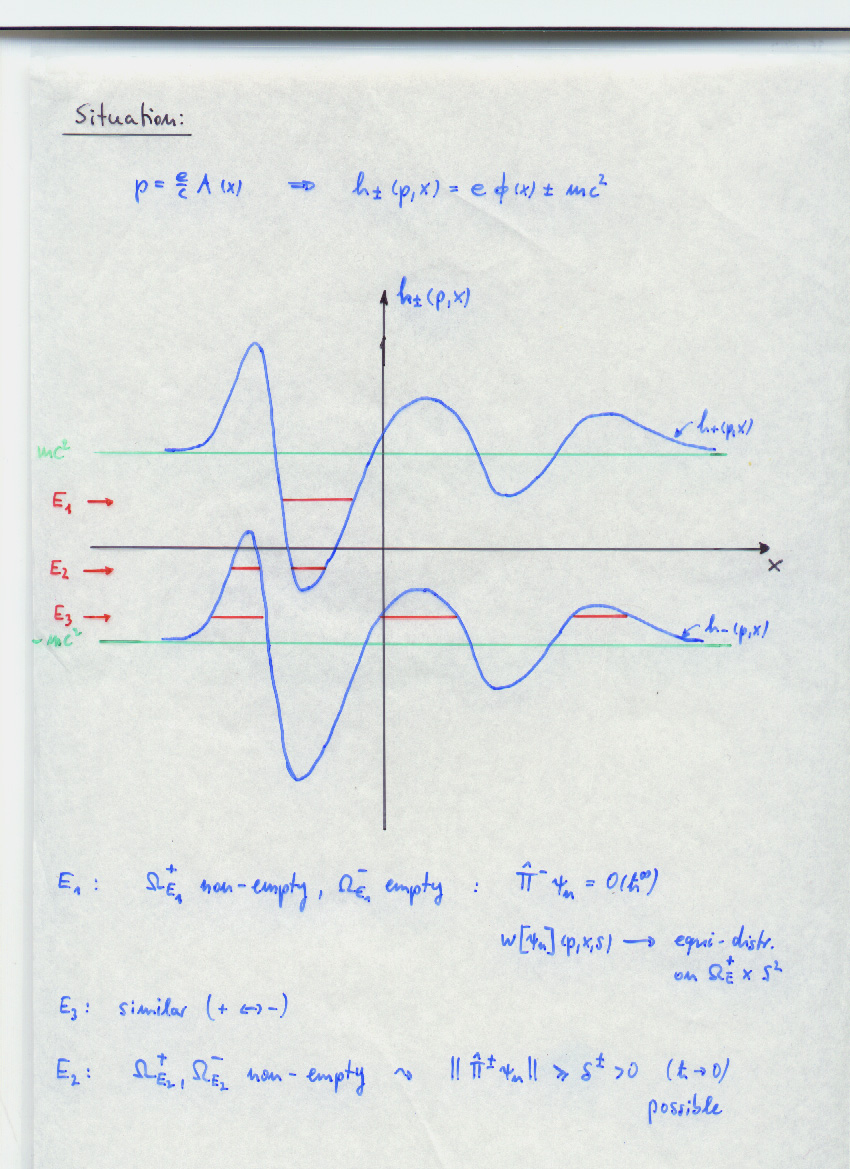 Situation:
p = e/c A(x) ⇒ h±(p,x) = e ϕ(x) ± mc²
h±(p,x)
h₊(p,x)
mc²
E₁ →
x
E₂ →
E₃ →
-mc²
h₋(p,x)
E₁: Ω⁺_E₁ non-empty, Ω⁻_E₁ empty : Π̂⁻ψₙ = O(ħ^∞)
w[ψₙ](p,x,s) → equi-distr.
on Ω⁺_E × S²
E₃: similar (+ ↔ -)
E₂: Ω⁺_E₂, Ω⁻_E₂ non-empty ⤳ ||Π̂^± ψₙ|| ≥ δ^± > 0 (ħ → 0)
possible